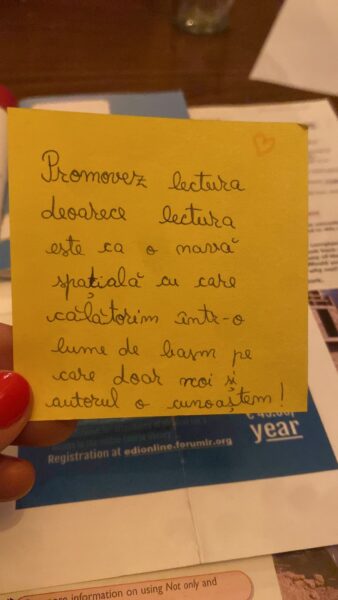 Promovez lectura
deoarece lectura
este ca o navă
spațială cu care
călătorim într-o
lume de basm pe
care doar noi și
autorul o cunoaștem!
year
Registration at edionline.forumir.org
information on using Not only and